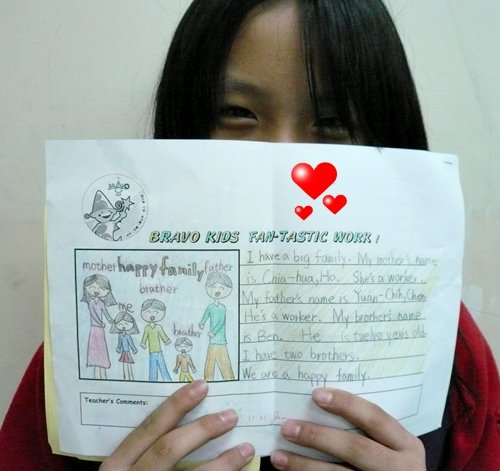 BRAVO
BRAVO KIDS FAN-TASTIC WORK!
mother happy family father
brather
me
brather
I have a big family. My mother's name
is Chia-hua, Ho. She's a worker.
My father's name is Yuan-Chih, Chan
He's a worker. My brother's name
is Ben. He is twelve years old.
I have two brothers.
We are a happy family.
Teacher's Comments: